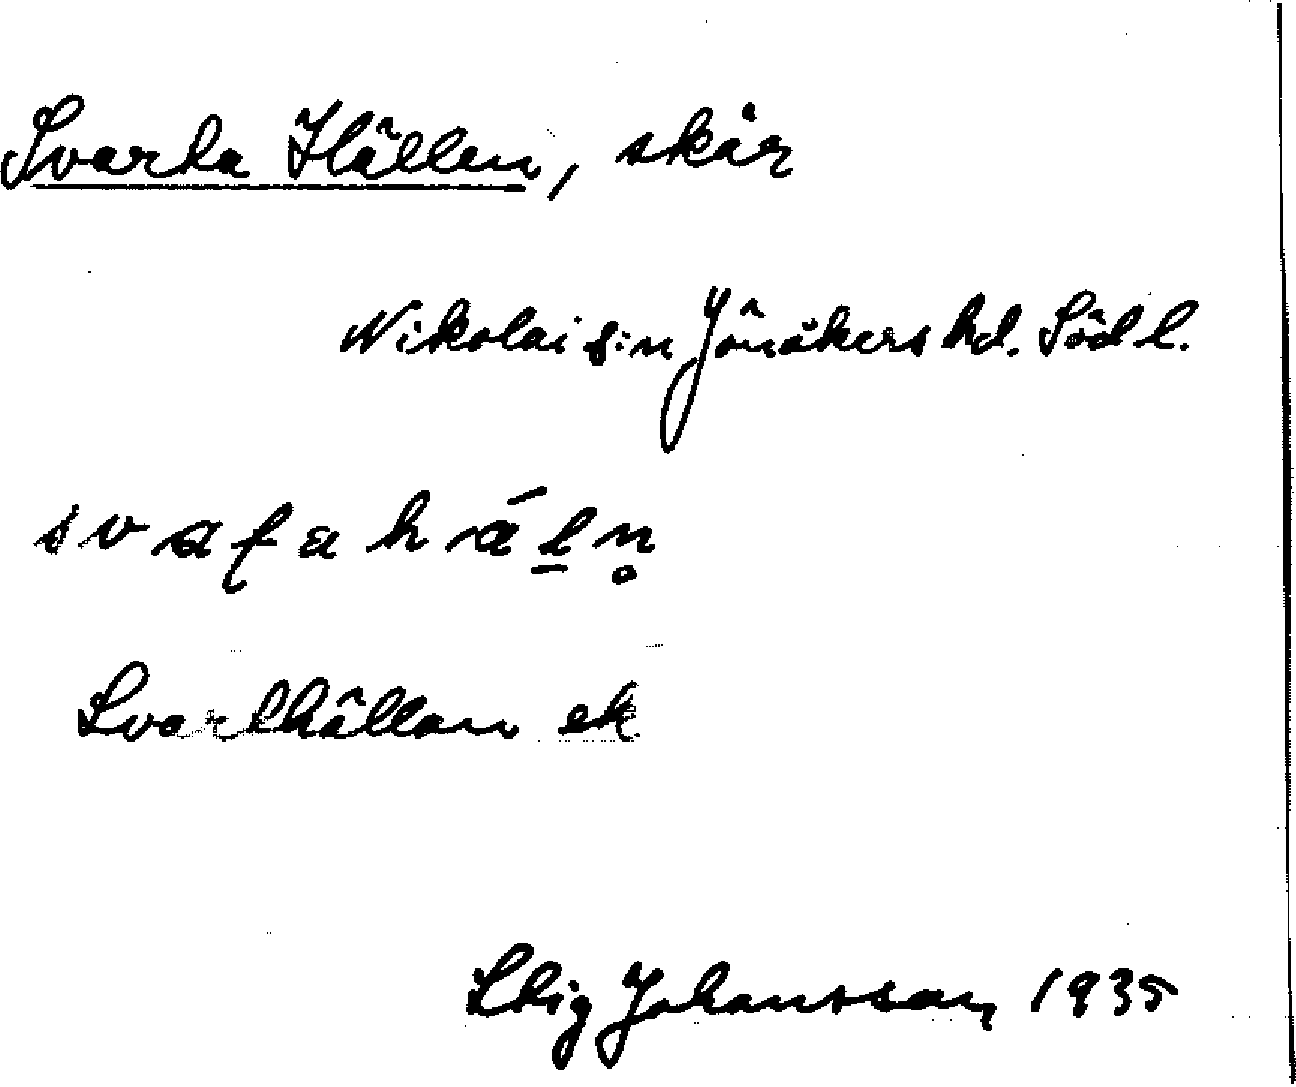 Svarta Hällen, skär
Nikolai s:n Jönåkers hd. Södl.
Svarthällan ek
Stig Johansson 1935